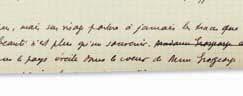 mais son visage portera à jamais la trace que
beauté n'est plus qu'un souvenir. madame Grosgeorge
le pays évite dans le coeur de Mme Grosgeorge